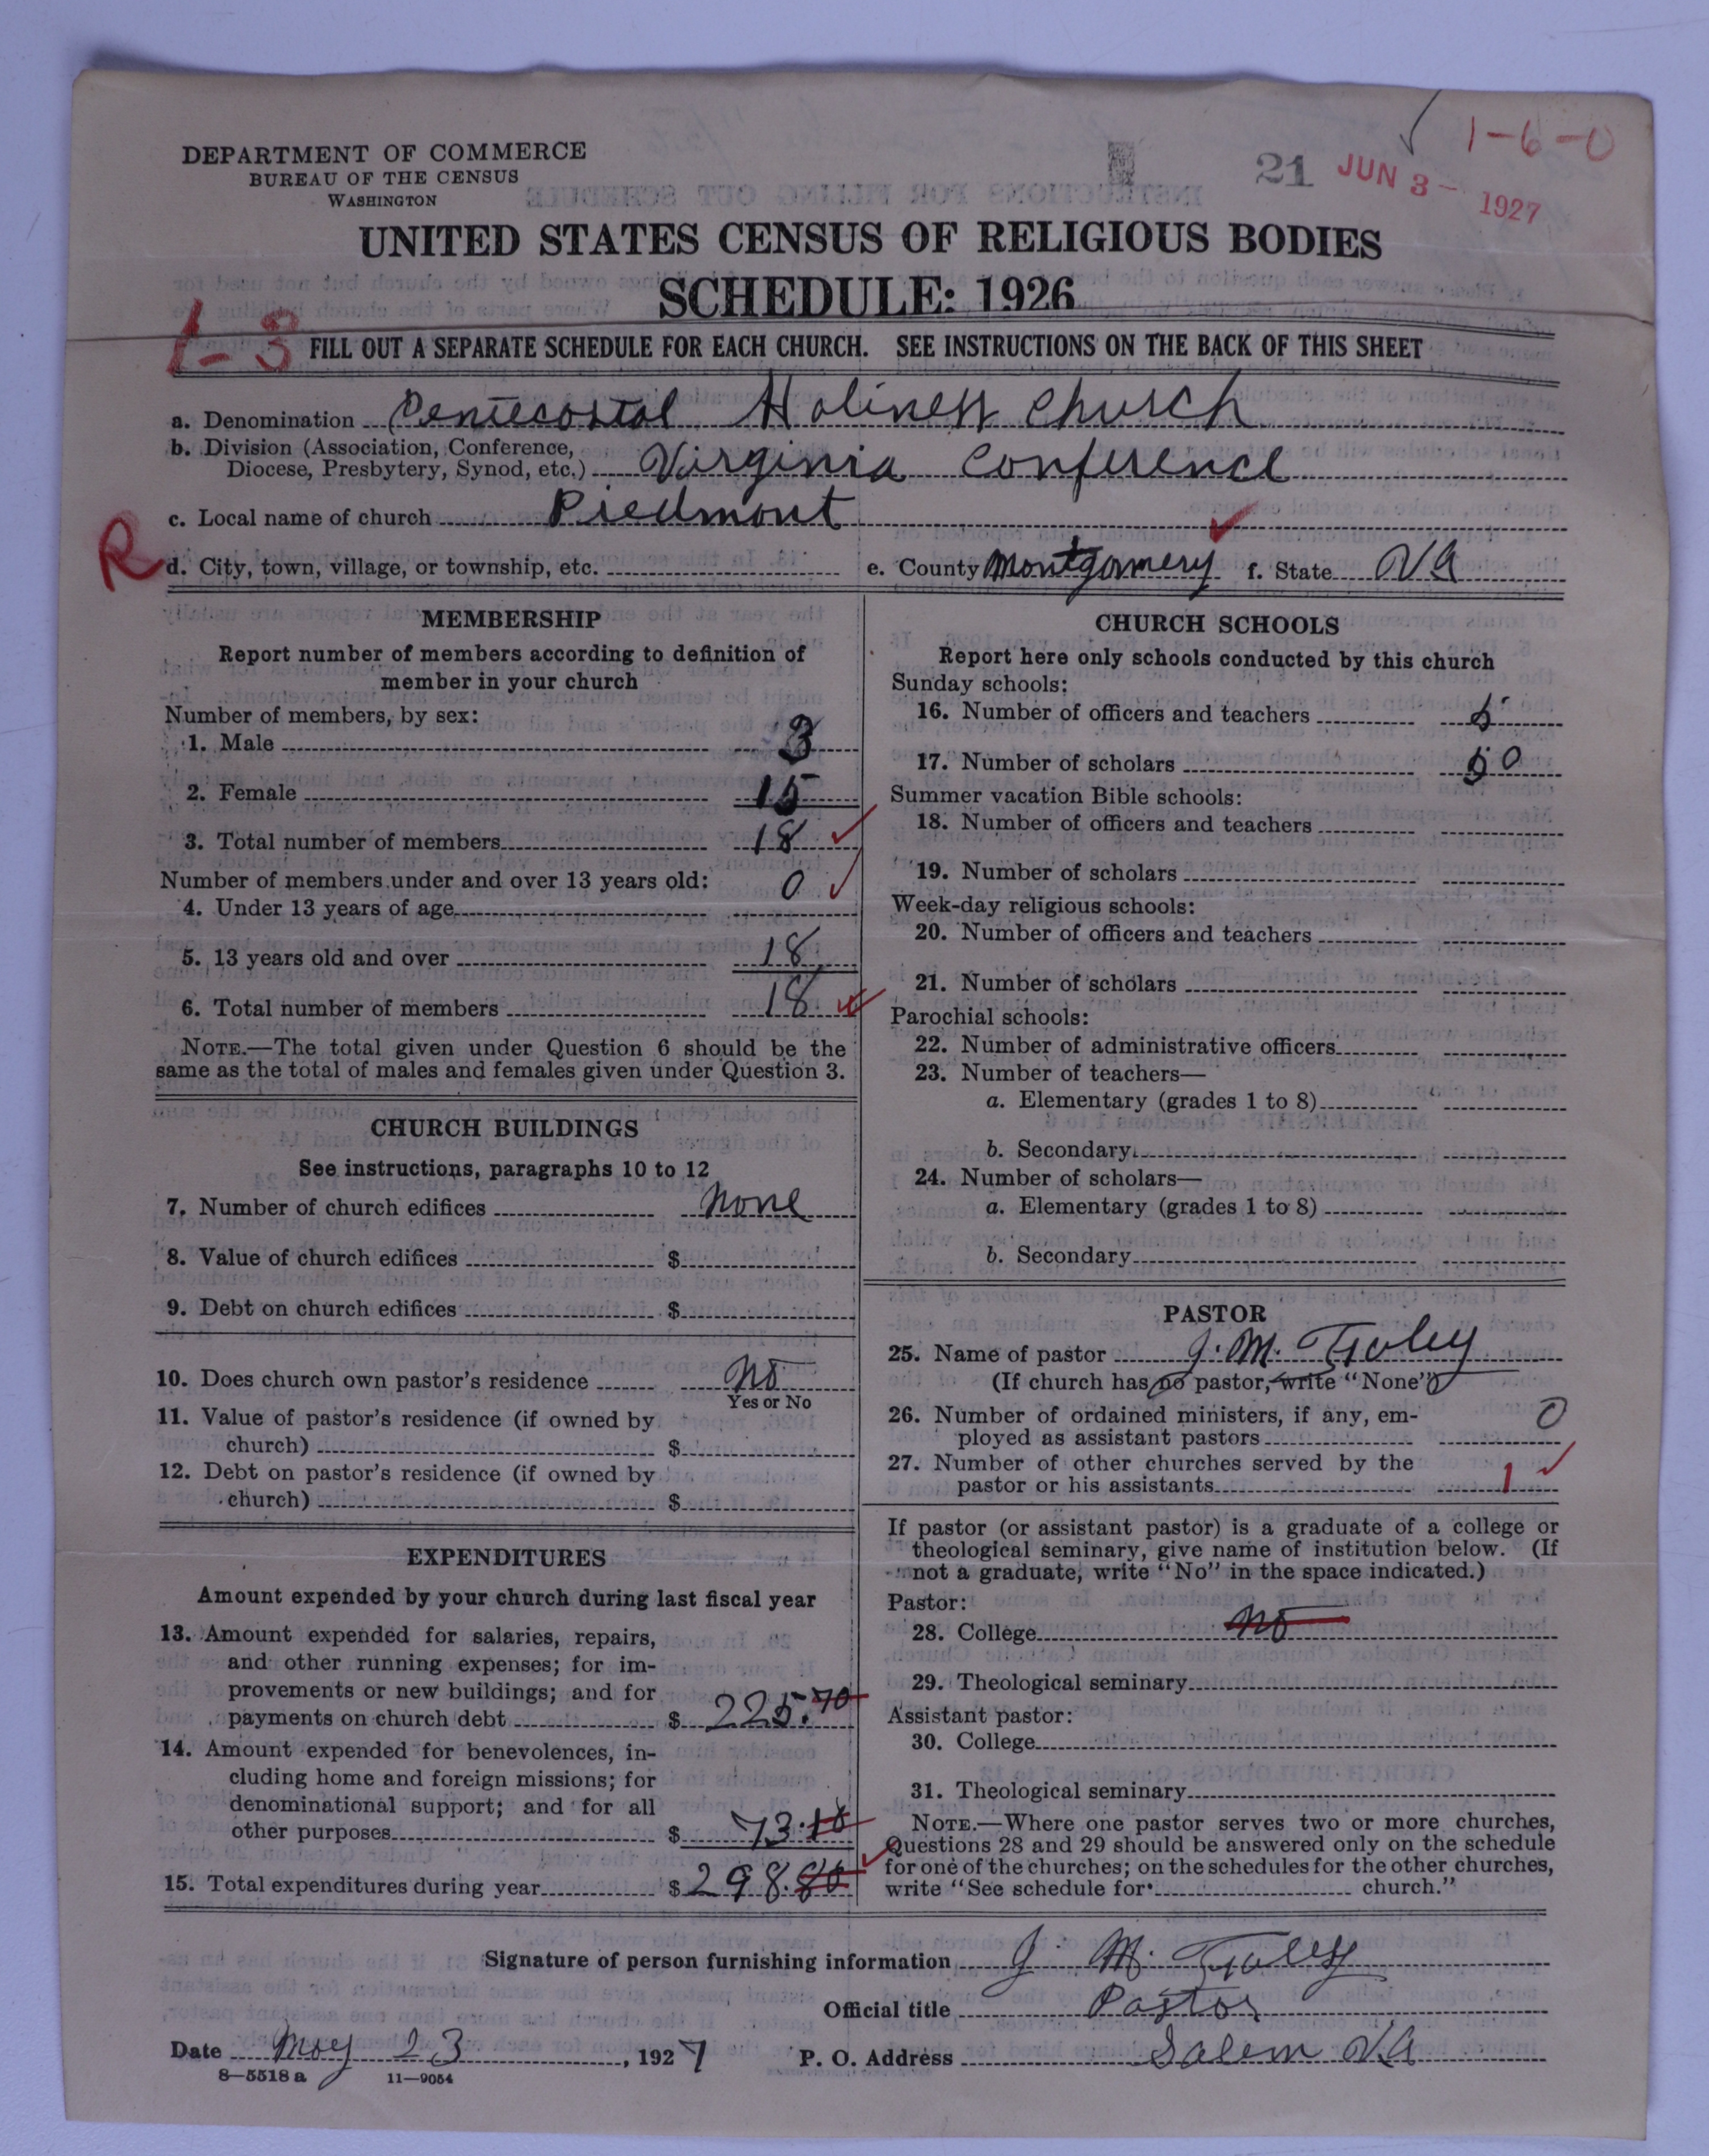 DEPARTMENT OF COMMERCE
BUREAU OF THE CENSUS
WASHINGTON
1-6-0
21 JUN 3 - 1927
UNITED STATES CENSUS OF RELIGIOUS BODIES
SCHEDULE: 1926
1-3
FILL OUT A SEPARATE SCHEDULE FOR EACH CHURCH. SEE INSTRUCTIONS ON THE BACK OF THIS SHEET
a. Denomination Pentecostal Holiness Church
b. Division (Association, Conference,
Diocese, Presbytery, Synod, etc.) Virginia Conference
c. Local name of church Piedmont
R
d. City, town, village, or township, etc. e. County Montgomery f. State VA
MEMBERSHIP
Report number of members according to definition of
member in your church
Number of members, by sex:
1. Male 3
2. Female 15
3. Total number of members 18
Number of members under and over 13 years old:
4. Under 13 years of age 0
5. 13 years old and over 18
6. Total number of members 18
NOTE.—The total given under Question 6 should be the
same as the total of males and females given under Question 3.
CHURCH BUILDINGS
See instructions, paragraphs 10 to 12
7. Number of church edifices None
8. Value of church edifices $
9. Debt on church edifices $
10. Does church own pastor's residence No
Yes or No
11. Value of pastor's residence (if owned by
church) $
12. Debt on pastor's residence (if owned by
church) $
EXPENDITURES
Amount expended by your church during last fiscal year
13. Amount expended for salaries, repairs,
and other running expenses; for im-
provements or new buildings; and for
payments on church debt $ 225.70
14. Amount expended for benevolences, in-
cluding home and foreign missions; for
denominational support; and for all
other purposes $ 73.10
15. Total expenditures during year $ 298.80
CHURCH SCHOOLS
Report here only schools conducted by this church
Sunday schools:
16. Number of officers and teachers
17. Number of scholars
Summer vacation Bible schools:
18. Number of officers and teachers
19. Number of scholars
Week-day religious schools:
20. Number of officers and teachers
21. Number of scholars
Parochial schools:
22. Number of administrative officers
23. Number of teachers—
a. Elementary (grades 1 to 8)
b. Secondary
24. Number of scholars—
a. Elementary (grades 1 to 8)
b. Secondary
PASTOR
25. Name of pastor J. M.
(If church has no pastor, write "None")
26. Number of ordained ministers, if any, em-
ployed as assistant pastors 0
27. Number of other churches served by the
pastor or his assistants 1
If pastor (or assistant pastor) is a graduate of a college or
theological seminary, give name of institution below. (If
not a graduate, write "No" in the space indicated.)
Pastor:
28. College No
29. Theological seminary
Assistant pastor:
30. College
31. Theological seminary
NOTE.—Where one pastor serves two or more churches,
Questions 28 and 29 should be answered only on the schedule
for one of the churches; on the schedules for the other churches,
write "See schedule for church."
Signature of person furnishing information J. M.
Official title Pastor
Date May 23, 1927 P. O. Address Salem VA
8—5518 a 11—9054